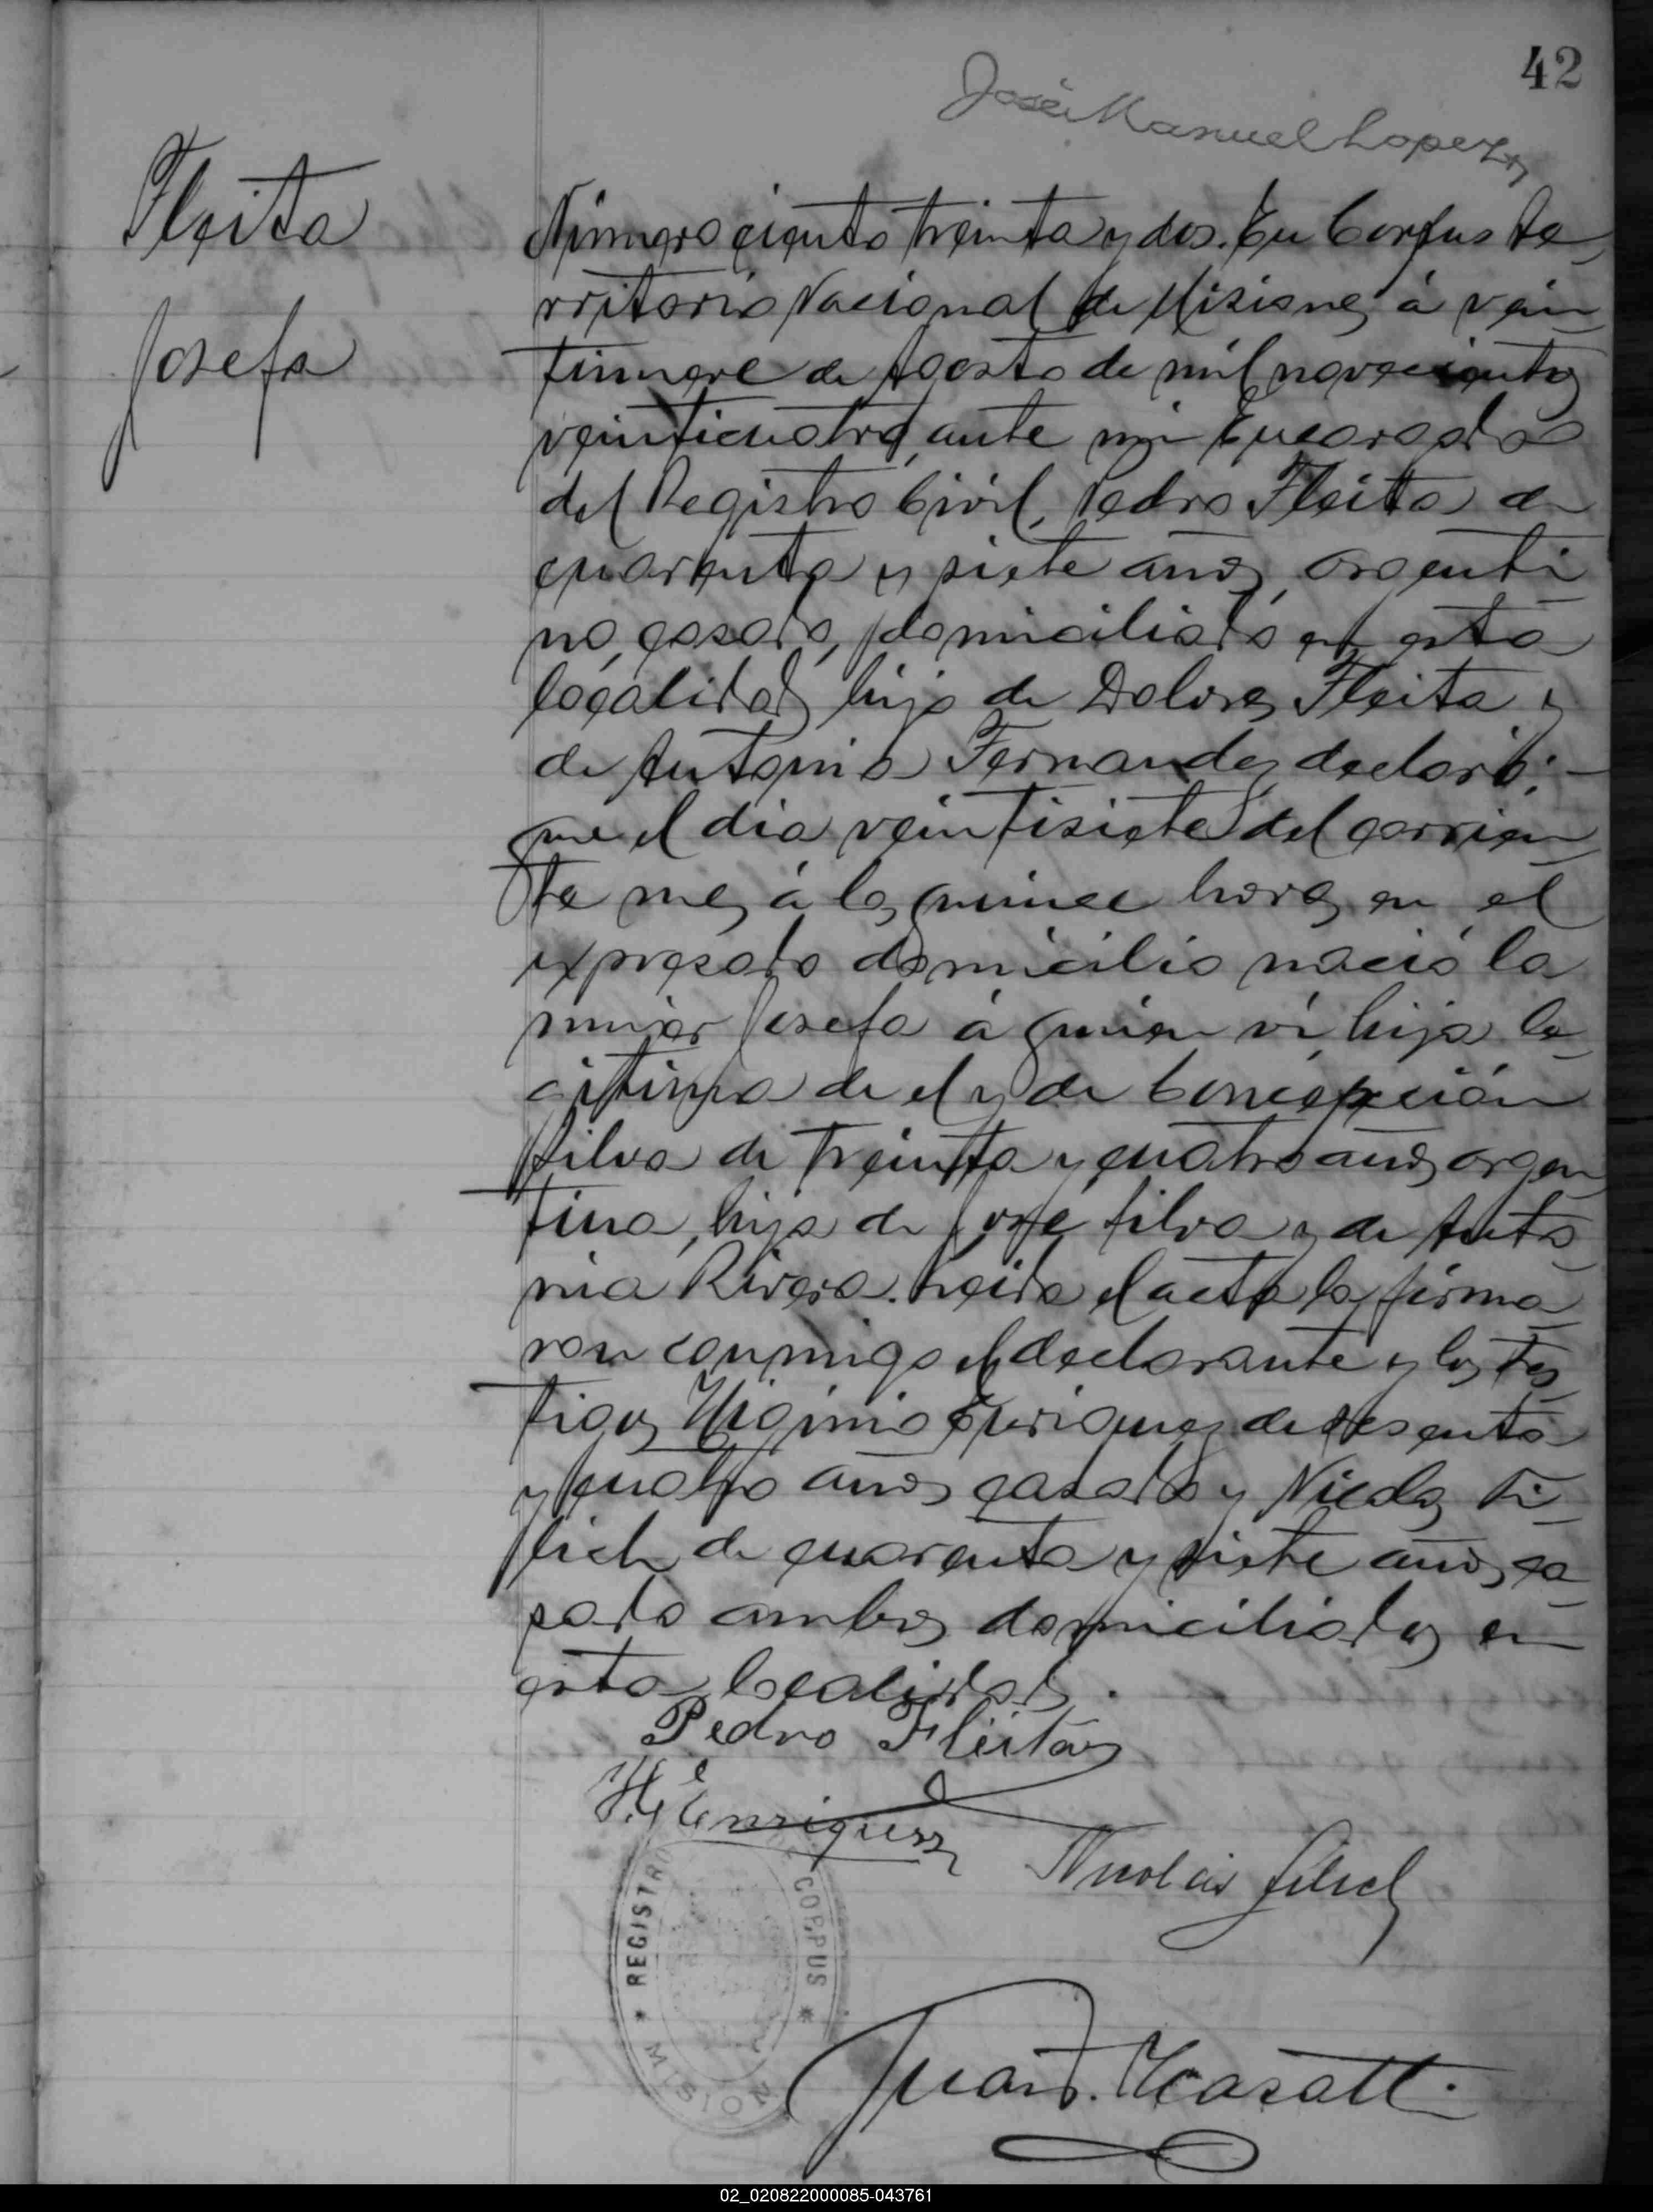 42
José Manuel Lopez
Fleita
Josefa
Número ciento treinta y dos. En Corpus te_
rritorio Nacional de Misiones á vein_
tinueve de Agosto de mil novecientos
veinticuatro, ante mi Encargado
del Registro Civil, Pedro Fleita de
cuarenta y siete años, argenti_
no, casado, domiciliado en esta
localidad, hijo de Dolores Fleita y
de Antonio Fernandez, declaró:_
que el dia veintisiete del corrien_
te mes á las quince horas en el
expresado domicilio nació la
mujer Josefa á quien ví hija le_
gitima de el y de Concepción
Silva de treinta y cuatro años, argen_
tina, hija de José Silva y de Anto_
nia Rivero. Leida el acta la firma_
ron conmigo el declarante y los tes_
tigos Higinio Enriquez de sesenta
y cuatro años casado y Nicolas Fi_
lich de cuarenta y siete años, ca_
sado ambos domiciliados en
esta localidad.
Pedro Fleitas
H. Enriquez
Nicolás Filich
REGISTRO
CORPUS
MISION
Juan
02_020822000085-043761